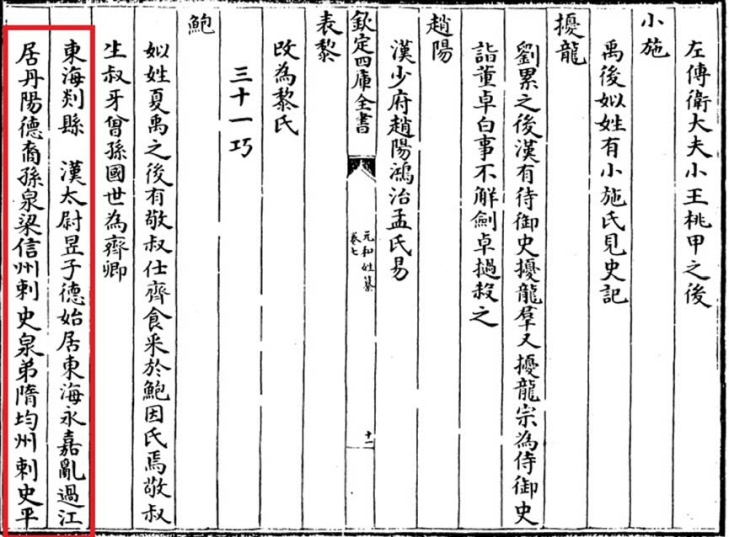 左傳衛大夫小王桃甲之後
小施
禹後姒姓有小施氏見史記
擾龍
劉累之後漢有待御史擾龍羣又擾龍宗為侍御史
詣董卓白事不解劍卓撾殺之
趙陽
漢少府趙陽鴻治孟氏易
欽定四庫全書
元和姓纂
卷七
十一
表黎
改為黎氏
三十一巧
鮑
姒姓夏禹之後有敬叔仕齊食采於鮑因氏焉敬叔
生叔牙曾孫國世為齊卿
東海剡縣 漢太尉昱子德始居東海永嘉亂過江
居丹陽德裔孫泉梁信州刺史泉弟隋均州刺史平